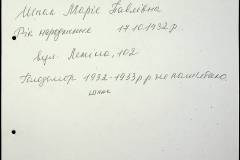 Шпак Марія Павлівна
Рік народження 17.10.1932 р.
вул. Леніна, 102
Голодомор 1932-1933 р.р не пам'ятає,